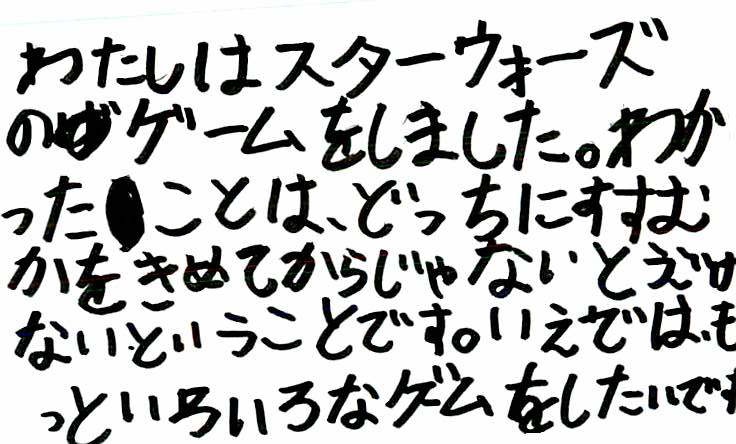 わたしはスターウォーズ
のゲームをしました。わか
ったことは、どっちにすすむ
かをきめてからじゃないとえが
ないということです。いえでは、も
っといろいろなゲムをしたいです